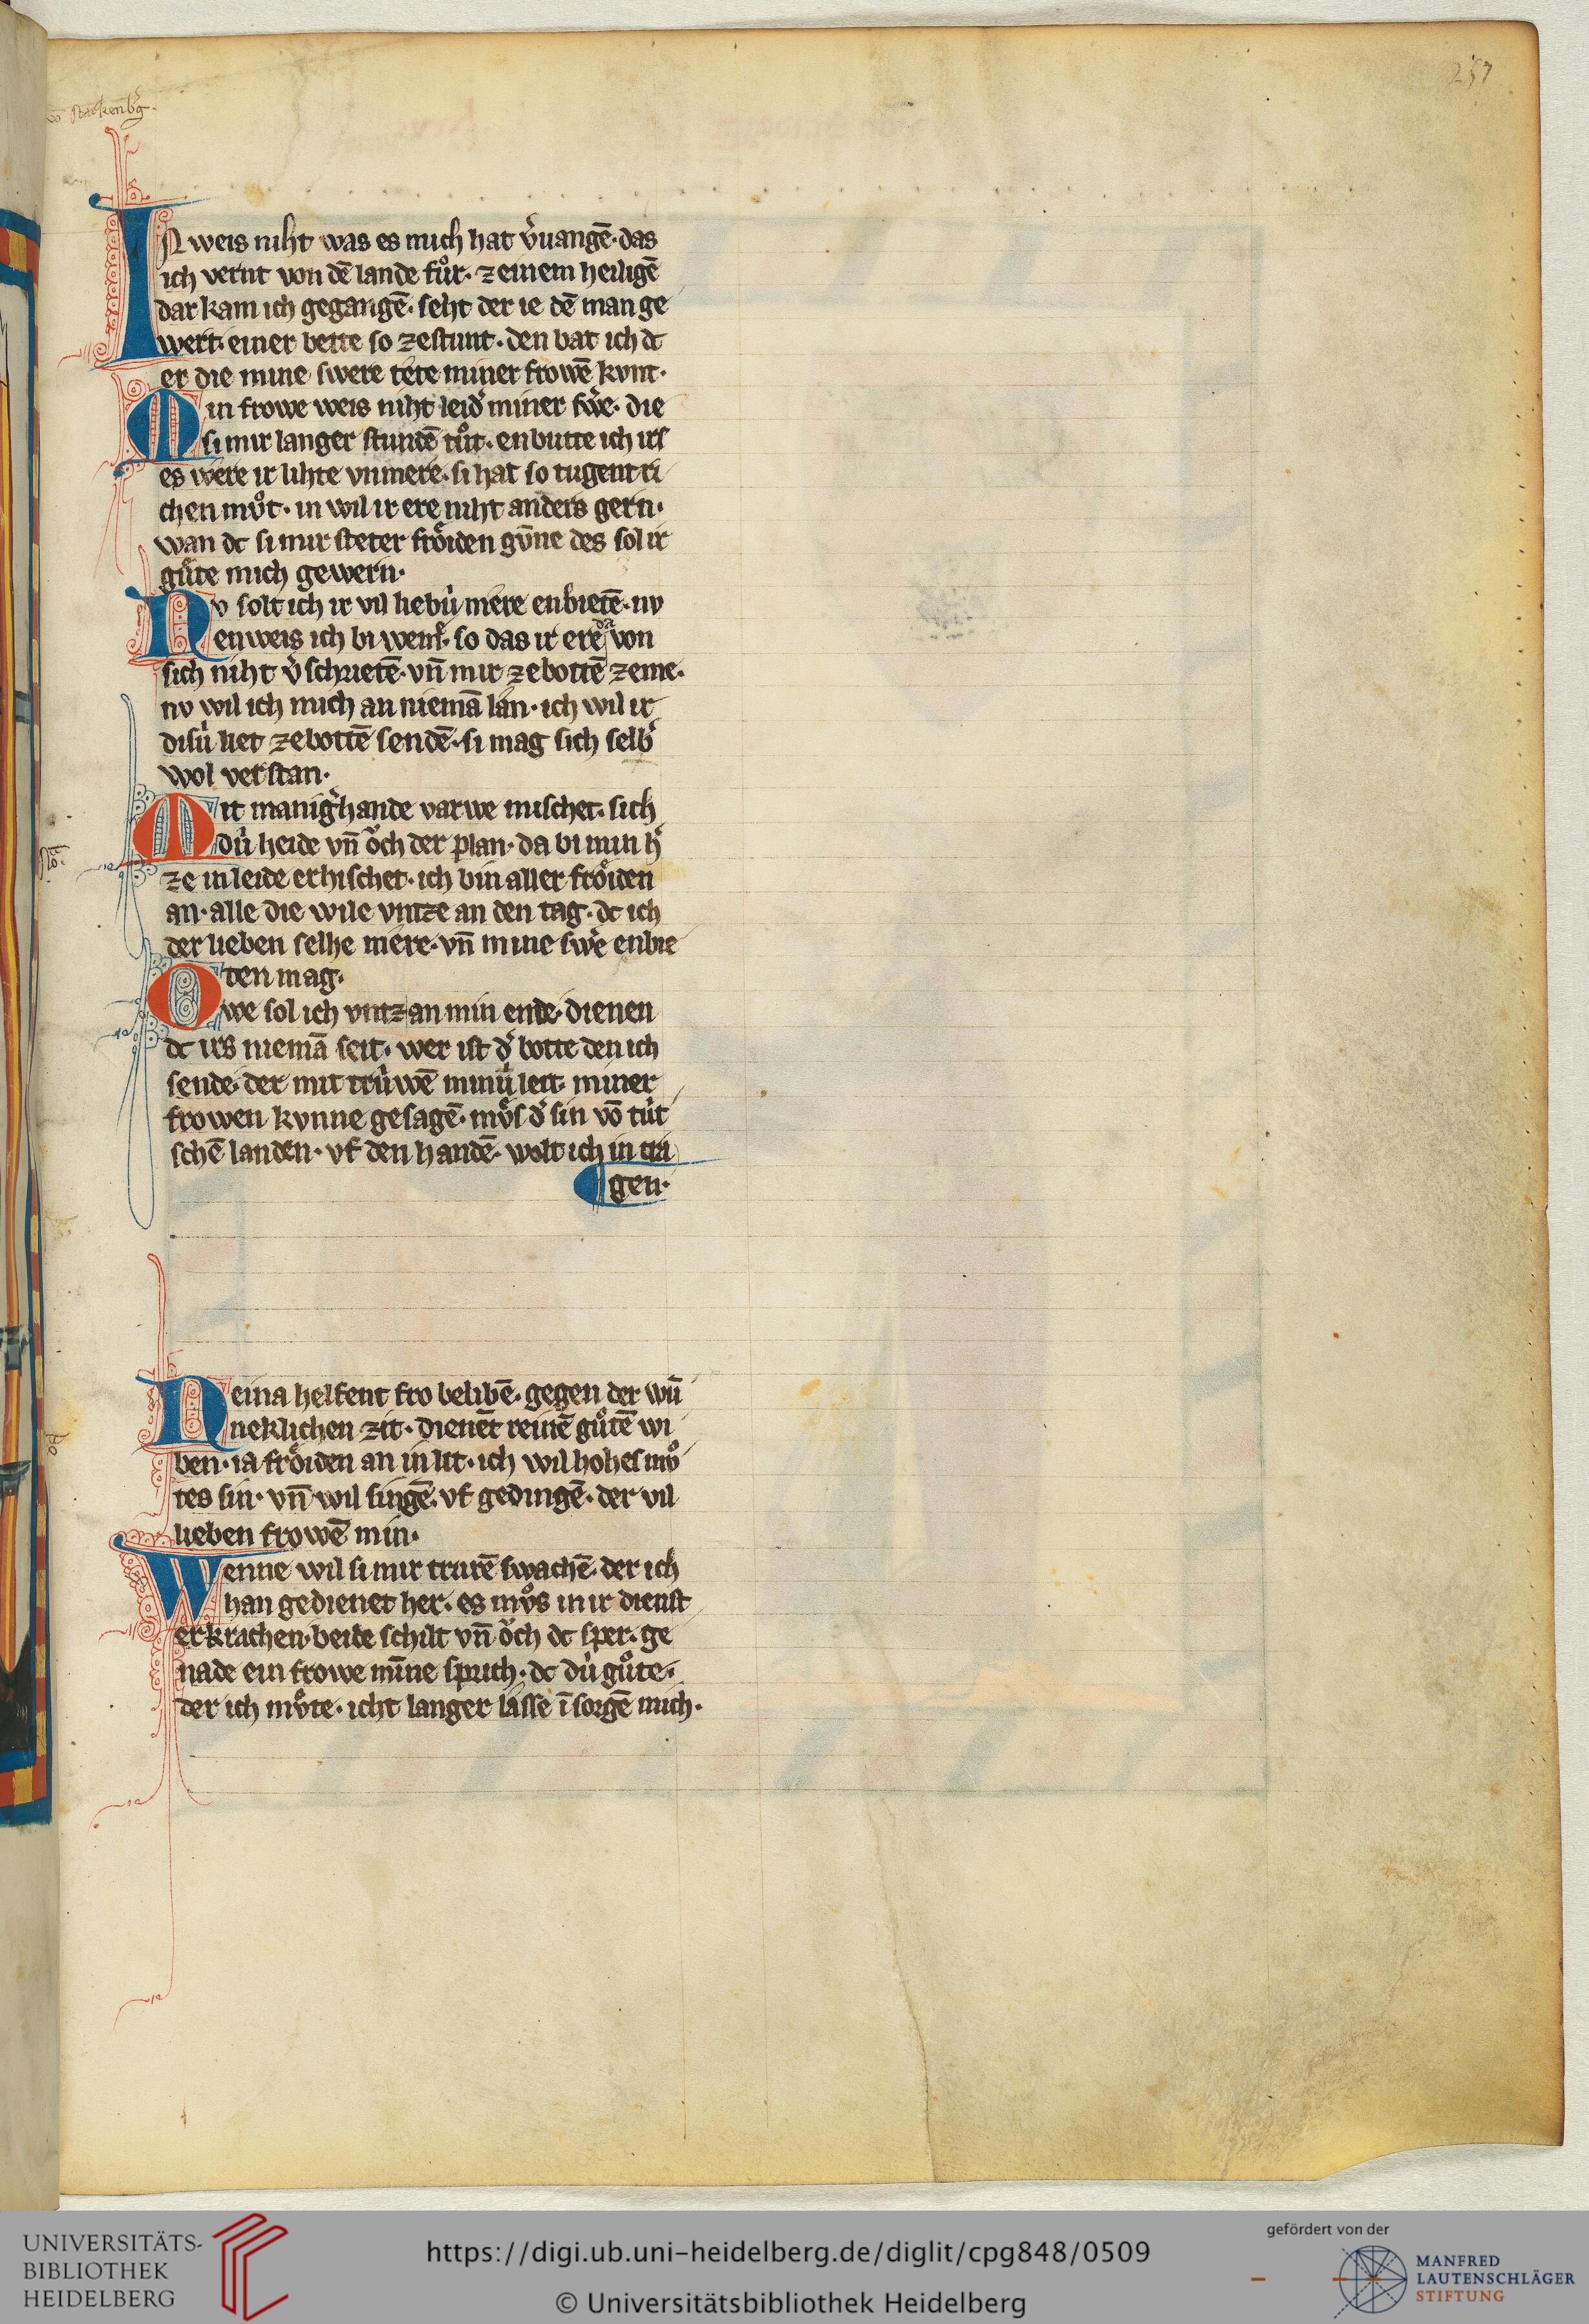 257
vō starkenbg̾.
IN weis niht was es mich hat v̾uangē· das
ich vernt von dē lande fuͦr· zeinem heiligē
dar kam ich gegangē· seht der ie dē man ge
wert· einer bette so zestunt· den bat ich dc
er die mine swere tete miner frowē kvnt·
Min frowe weis niht leid̾ miner sw̾e· die
si mir langer stundē tuͦt· enbutte ich irs
es were ir lihte vnmere· si hat so tugent ri
chen mvͦt· in wil ir ere niht anders gern·
wan dc si mir steter froͤiden gvnne des sol ir
guͤte mich gewern·
Nv solt ich ir vil liebuͥ mere enbietē· nv
enweis ich bi wem· so das ir ere da von
sich niht v̾schrietē· vn̄ mir ze bottē zeme·
nv wil ich mich an niemā lan· ich wil ir
disuͥ liet ze bottē sendē· si mag sich selb̾
wol verstan·
Mit manig̾hande varwe mischet· sich
duͥ heide vn̄ oͮch der plan· da bi min h̾
ze in leide erhischet· ich bin aller froͤiden
an· alle die wile vntze an den tag· dc ich
der lieben selhe mere· vn̄ mine sw̾e enbie
ten mag·
Owe sol ich vntz an min ende· dienen
dc irs niemā seit· wer ist d̾ botte den ich
sende· der mit truͥwē minuͥ leit· miner
frowen kvnne gesagē· mvͤs d̾ sin vō tuͥt
schē landen· vf den handē· wolt ich in tra
gen·
Neina helfent fro belibē· gegen der wū
neklichen zit· dienēt reinē guͦtē wi
ben· ia froͤiden an in lit· ich wil hohes mvͦ
tes sin· vn̄ wil singē· vf gedingē· der vil
lieben frowē min·
Wenne wil si mir trurē swachē· der ich
han gedienet her· es mvͦs in ir dienst
erkrachen· beide schilt vn̄ oͮch dc sper· ge
nade ein frowe mīne sprich· dc duͥ guͦte·
der ich mvͤte· icht langer lasse ī sorgē mich·
UNIVERSITÄTS-
BIBLIOTHEK
HEIDELBERG
https://digi.ub.uni-heidelberg.de/diglit/cpg848/0509
© Universitätsbibliothek Heidelberg
gefördert von der
MANFRED
LAUTENSCHLÄGER
STIFTUNG